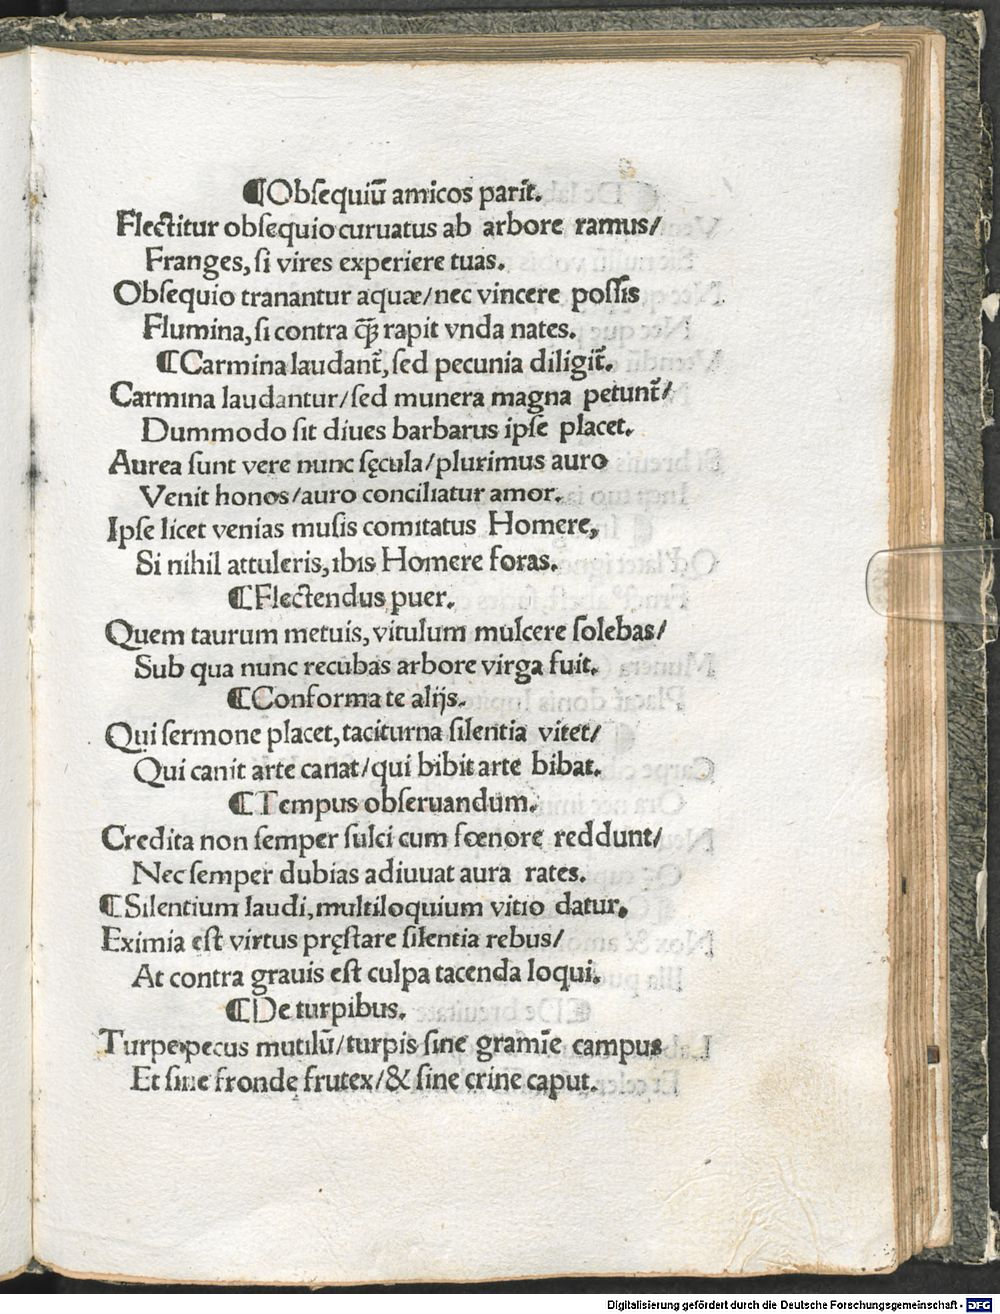 ¶Obſequiū amicos parit̄.
Flectitur obſequio curuatus ab arbore ramus/
Franges, ſi vires experiere tuas.
Obſequio tranantur aquæ/nec vincere poſſis
Flumina, ſi contra qꝫ rapit vnda nates.
¶Carmina laudant̄, ſed pecunia diligit̄.
Carmina laudantur/ſed munera magna petunt̄/
Dummodo ſit diues barbarus ipſe placet.
Aurea ſunt vere nunc ſęcula/plurimus auro
Venit honos/auro conciliatur amor.
Ipſe licet venias muſis comitatus Homere,
Si nihil attuleris, ibis Homere foras.
¶Flectendus puer.
Quem taurum metuis, vitulum mulcere ſolebas/
Sub qua nunc recubas arbore virga fuit.
¶Conforma te alijs.
Qui ſermone placet, taciturna ſilentia vitet/
Qui canit arte canat/qui bibit arte bibat.
¶Tempus obſeruandum.
Credita non ſemper ſulci cum fœnore reddunt/
Nec ſemper dubias adiuuat aura rates.
¶Silentium laudi, multiloquium vitio datur.
Eximia eſt virtus pręſtare ſilentia rebus/
At contra grauis eſt culpa tacenda loqui.
¶De turpibus.
Turpe pecus mutilū/turpis ſine gramīe campus
Et ſine fronde frutex/& ſine crine caput.
Digitalisierung gefördert durch die Deutsche Forschungsgemeinschaft - DFG